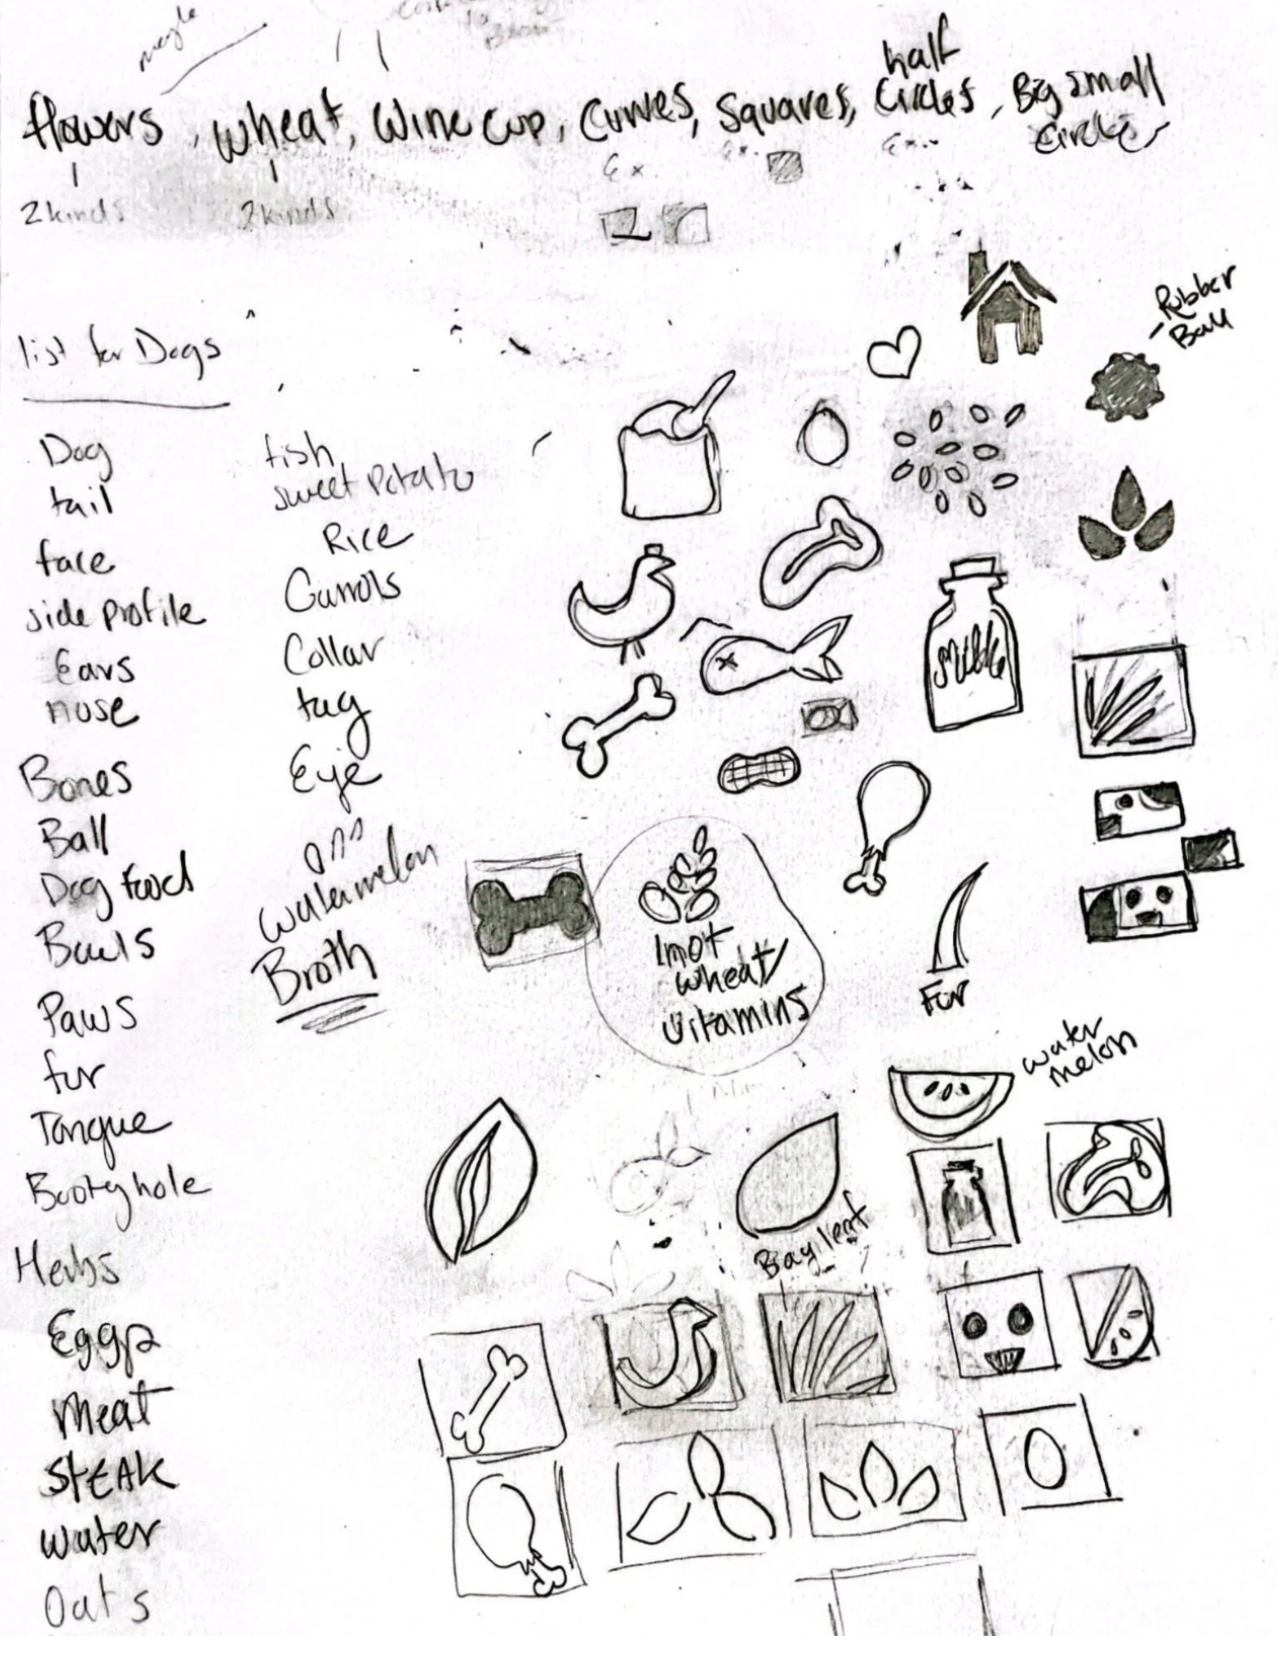 maybe
half
flowers, wheat, Wine cup, Curves, Squares, Circles, Big small
Circles
Ex
Ex.
Ex..
2 kinds
2 kinds
list for Dogs
Rubber
Ball
Dog
tail
face
side profile
Ears
nose
Bones
Ball
Dog food
Bowls
Paws
fur
Tongue
Bootyhole
Herbs
Eggs
meat
STEAK
water
Oats
fish
sweet Potato
Rice
Carrots
Collar
tag
Eye
watermelon
Broth
milk
wheat/
vitamins
Fur
water
melon
Bay leaf